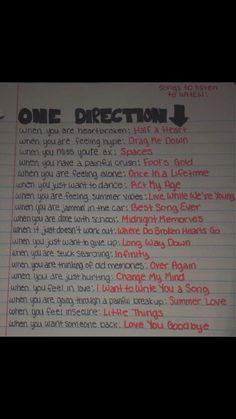 songs to listen
to when:
ONE DIRECTION
when you are heartbroken: Half a Heart
when you are feeling hype: Drag Me Down
when you miss you're ex: Spaces
when you have a painful crush: Fool's Gold
when you are feeling alone: Once In a Lifetime
when you just want to dance: Act My Age
when you are feeling summer vibes: Live While We're Young
when you are jammin in the car: Best Song Ever
when you are done with school: Midnight Memories
when it just doesn't work out: Where Do Broken Hearts Go
when you just want to give up: Long Way Down
when you are stuck searching: Infinity
when you are thinking of old memories: Over Again
when you are just hurting: Change My Mind
when you feel in love: I Want to Write You a Song
when you are going through a painful breakup: Summer Love
when you feel insecure: Little Things
when you want someone back: Love You Goodbye